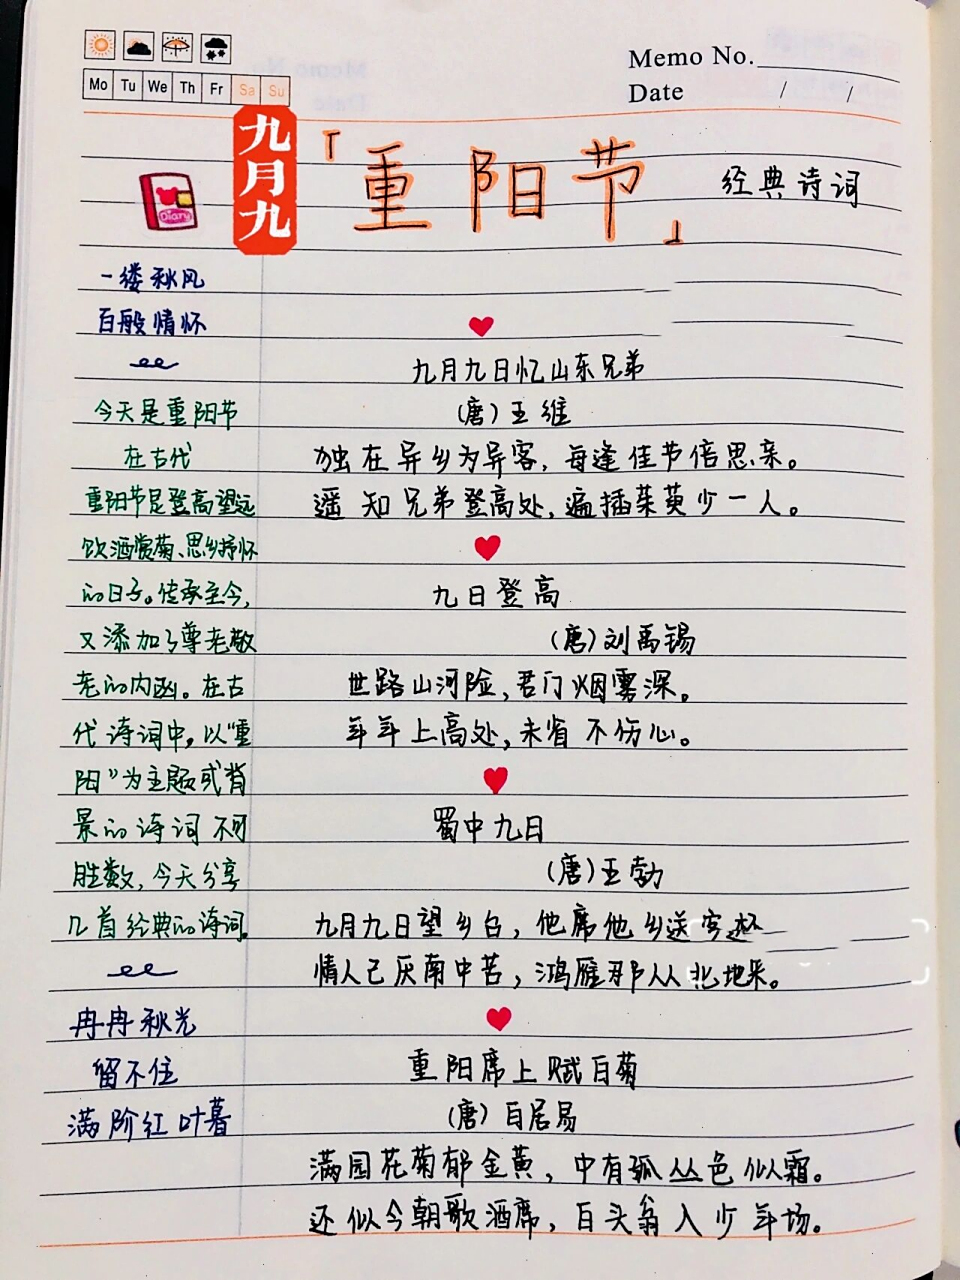 Memo No.
Mo Tu We Th Fr Sa Su
Date / /
九月九
「重阳节」 经典诗词
Diary
一缕秋风
百般情怀
今天是重阳节
在古代
重阳节是登高望远
饮酒赏菊、思乡抒怀
的日子。传承至今,
又添加了尊老敬
老的内涵。在古
代诗词中,以“重
阳”为主题或背
景的诗词不可
胜数,今天分享
几首经典的诗词。
冉冉秋光
留不住
满阶红叶暮
九月九日忆山东兄弟
(唐)王维
独在异乡为异客,每逢佳节倍思亲。
遥知兄弟登高处,遍插茱萸少一人。
九日登高
(唐)刘禹锡
世路山河险,君门烟雾深。
年年上高处,未省不伤心。
蜀中九日
(唐)王勃
九月九日望乡台,他席他乡送客杯
情人已厌南中苦,鸿雁那从北地来。
重阳席上赋白菊
(唐)白居易
满园花菊郁金黄,中有孤丛色似霜。
还似今朝歌酒席,白头翁入少年场。